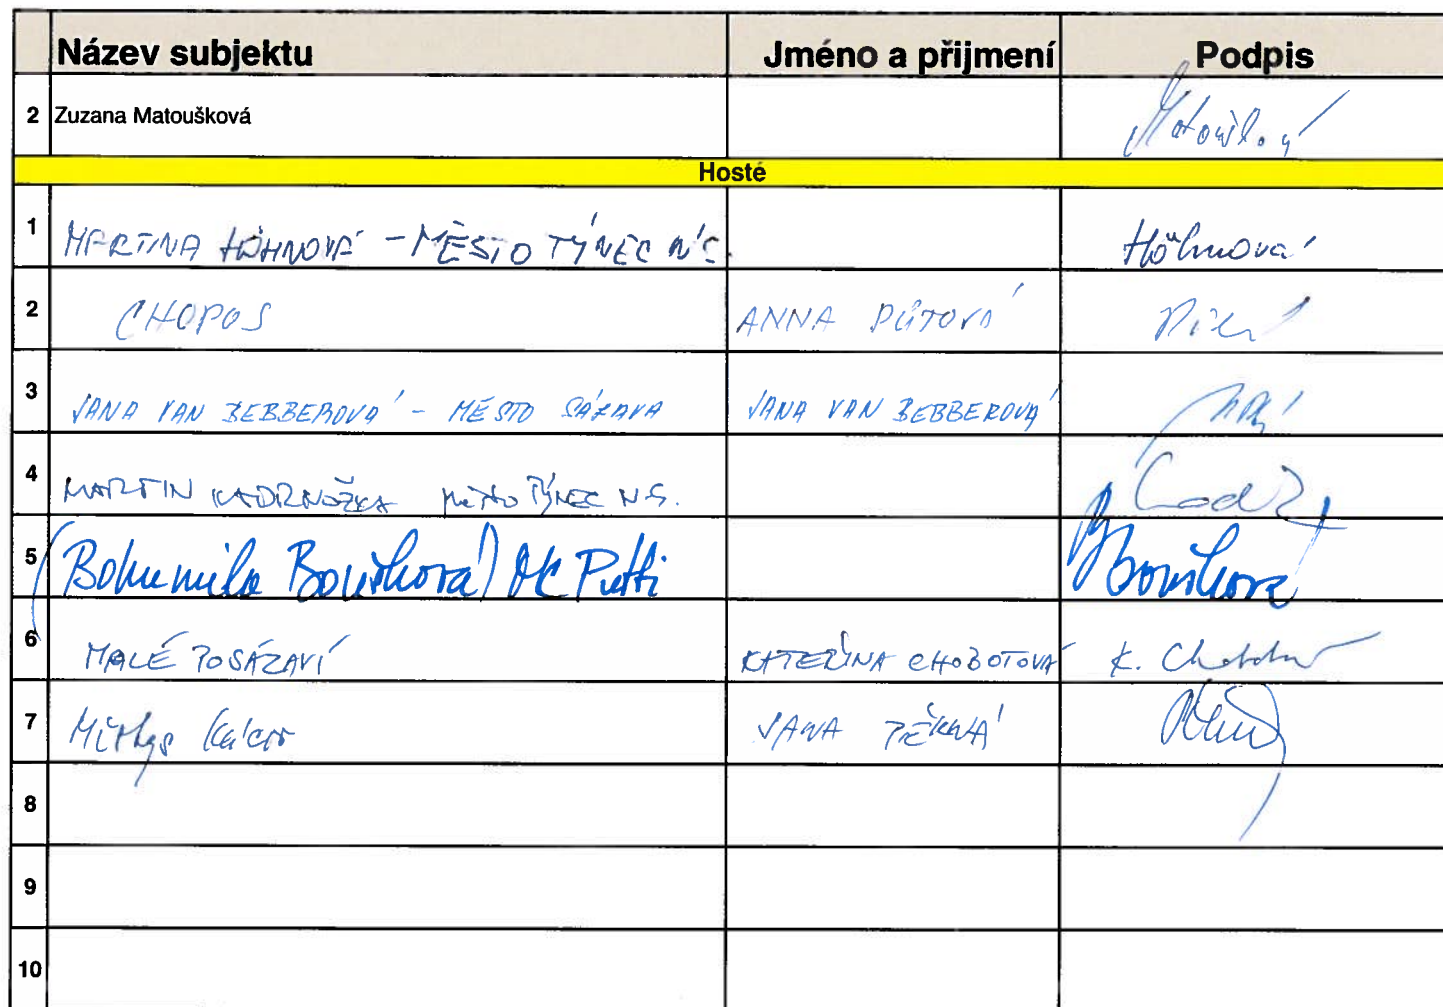 Název subjektu Jméno a přijmení Podpis
2 Zuzana Matoušková Matoušková
Hosté
1 MARTINA HÖHNOVÁ - MĚSTO TÝNEC N/S Höhnová
2 CHOPOS ANNA DŮTOVÁ
3 JANA VAN BEBBEROVÁ - MĚSTO SÁZAVA JANA VAN BEBBEROVÁ
4 MARTIN KADRNOŽKA MĚSTO TÝNEC N.S.
5 (Bohumila Boušková) MC Putti Boušková
6 MALÉ POSÁZAVÍ KATEŘINA CHOBOTOVÁ K. Chobotová
7 JANA PĚKNÁ
8
9
10